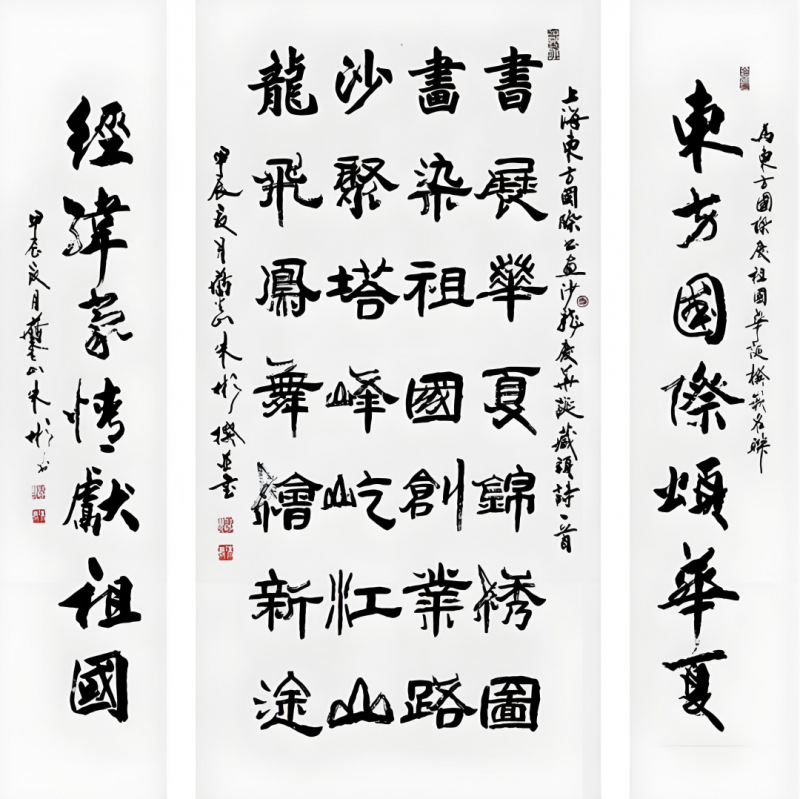 為東方國際慶祖國華誕撰嵌名聯
東方國際頌華夏
上海東方國際书画沙龍慶華誕藏頭詩一首
書展華夏錦綉圖
畫染祖國創業路
沙聚塔峰屹江山
龍飛鳳舞繪新途
甲辰夏月 山朱彬撰並书
經緯豪情獻祖國
甲辰夏月 山朱彬书